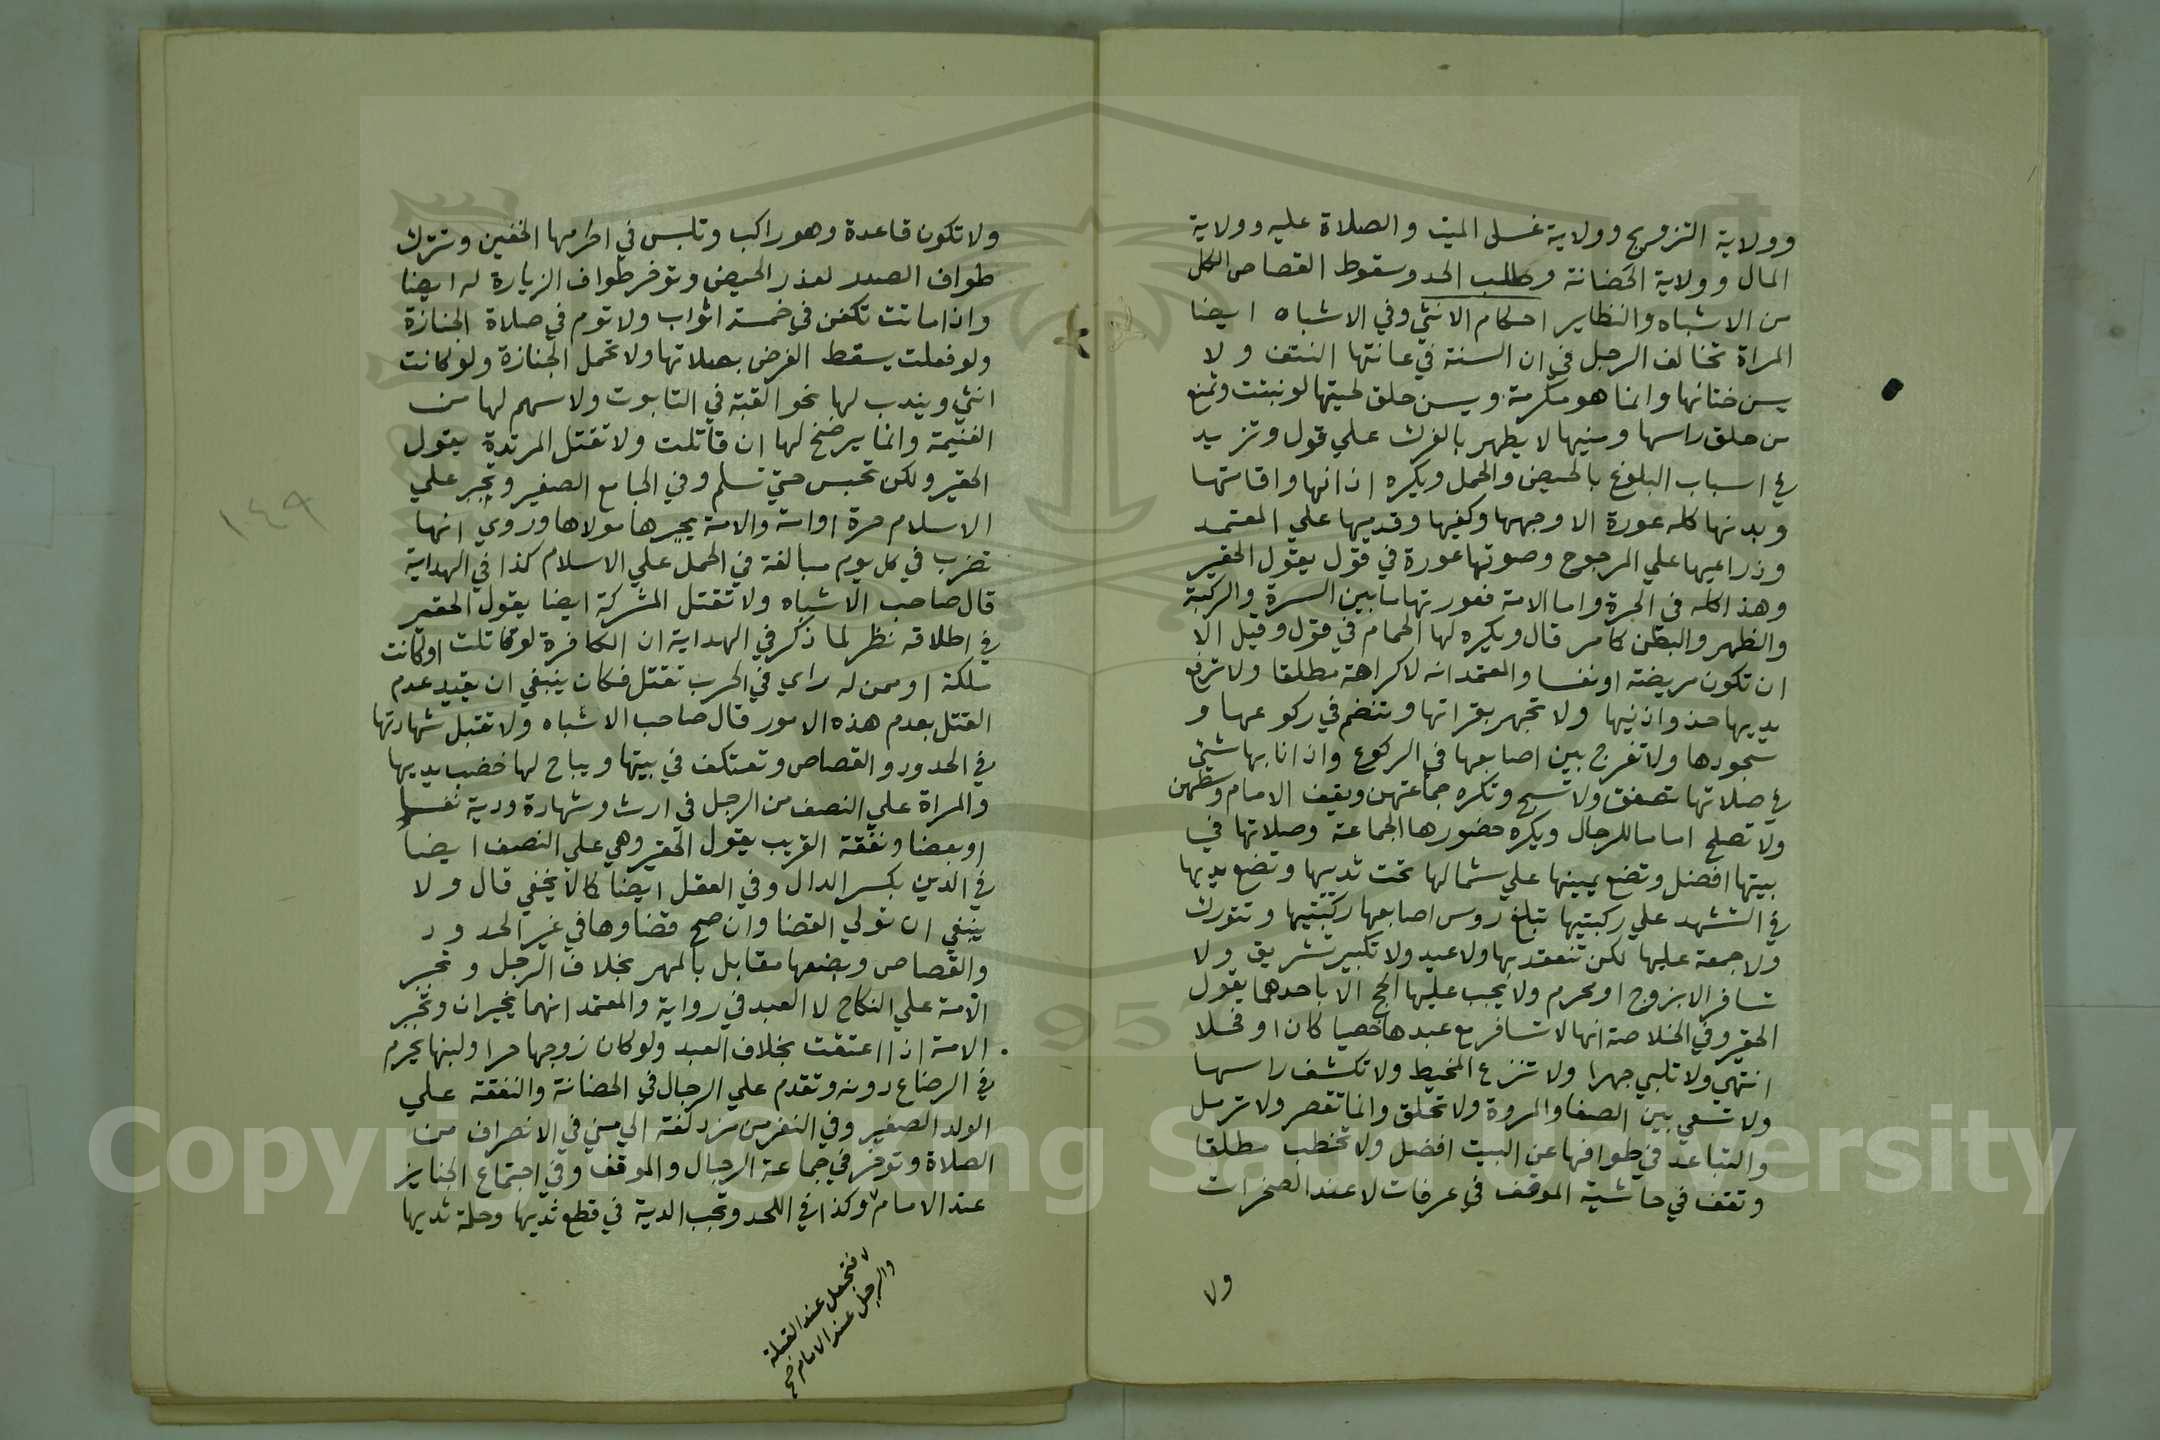 وولاية التزويج وولاية غسل الميت والصلاة عليه وولاية
المال وولاية الحضانة وطلب الحد وسقوط القصاص الكل
من الاشباه والنظاير احكام الانثي وفي الاشباه ايضا
المراة تخالف الرجل في ان السنة في عانتها النتف ولا
يسن ختانها وانما هو مكرمة ويسن حلق لحيتها لو نبتت وتمنع
من حلق راسها ومنيها لا يطهر بالفرك علي قول وتزيد
في اسباب البلوغ بالحيض والحمل ويكره اذانها واقامتها
وبدنها كله عورة الا وجهها وكفيها وقدميها علي المعتمد
وذراعيها علي المرجوح وصوتها عورة في قول يقول الحقير
وهذا كله في الحرة واما الامة فعورتها ما بين السرة والركبة
والظهر والبطن كما مر قال ويكره لها الحمام في قول وقيل الا
ان تكون مريضة او نفسا والمعتمد انه لا كراهة مطلقا ولا ترفع
يديها حذو اذنيها ولا تجهر بقراتها وتنضم في ركوعها و
سجودها ولا تفرج بين اصابعها في الركوع واذا نابها شيئ
في صلاتها تصفق ولا تسبح وتكره جماعتهن ويقف الامام وسطهن
ولا تصلح اماما للرجال ويكره حضورها الجماعة وصلاتها في
بيتها افضل وتضع يمينها علي شمالها تحت ثدييها وتضع يديها
في التشهد علي ركبتيها تبلغ روس اصابعها ركبتيها وتتورك
ولا جمعة عليها لكن تنعقد بها ولا عيد ولا تكبير تشريق ولا
تسافر الا بزوج او محرم ولا يجب عليها الحج الا باحدهما يقول
الحقير وفي الخلاصة انها لا تسافر مع عبدها خصيا كان او فحلا
انتهي ولا تلبي جهرا ولا تنزع المخيط ولا تكشف راسها
ولا تسعي بين الصفا والمروة ولا تحلق وانما تقصر ولا ترمل
والتباعد في طوافها عن البيت افضل ولا تخطب مطلقا
وتقف في حاشية الموقف في عرفات لا عند الصخرات
ولا
ولا تكون قاعدة وهو راكب وتلبس في احرامها الخفين وتترك
طواف الصدر لعذر الحيض وتوخر طواف الزيارة له ايضا
واذا ماتت تكفن في خمسة اثواب ولا توم في صلاة الجنازة
ولو فعلت يسقط الفرض بصلاتها ولا تحمل الجنازة ولو كانت
انثي ويندب لها نحو القبة في التابوت ولا سهم لها من
الغنيمة وانما يرضخ لها ان قاتلت ولا تقتل المرتدة يقول
الحقير ولكن تحبس حتي تسلم وفي الجامع الصغير وتجبر علي
الاسلام حرة او امة والامة يجبرها مولاها وروي انها
تضرب في كل يوم مبالغة في الحمل علي الاسلام كذا في الهداية
قال صاحب الاشباه ولا تقتل المشركة ايضا يقول الحقير
في اطلاقه نظر لما ذكر في الهداية ان الكافرة لو قاتلت او كانت
ملكة او ممن له راي في الحرب تقتل فكان ينبغي ان يقيد عدم
القتل بعدم هذه الامور قال صاحب الاشباه ولا تقبل شهادتها
في الحدود والقصاص وتعتكف في بيتها ويباح لها خضب يديها
والمراة علي النصف من الرجل في ارث وشهادة ودية نفسا
او بعضا ونفقة القريب يقول الحقير وهي علي النصف ايضا
في الدين بكسر الدال وفي العقل ايضا كما لا يخفي قال ولا
ينبغي ان تولي القضا وان صح قضاوها في غير الحدود
والقصاص وبضعها مقابل بالمهر بخلاف الرجل وتجبر
الامة علي النكاح لا العبد في رواية والمعتمد انهما يجبران وتخير
الامة اذا اعتقت بخلاف العبد ولو كان زوجها حرا ولبنها يحرم
في الرضاع دونه وتقدم علي الرجال في الحضانة والنفقة علي
الولد الصغير وفي النفر من مزدلفة الي مني في الانصراف من
الصلاة وتوخر في جماعة الرجال والموقف وفي اجتماع الجنايز
عند الامام وكذا في اللحد وتجب الدية في قطع ثديها وحلمة ثديها
فتجعل عند القبلة
والرجل عند الامام صح
١٤٩
Copyright © King Saud University
1957